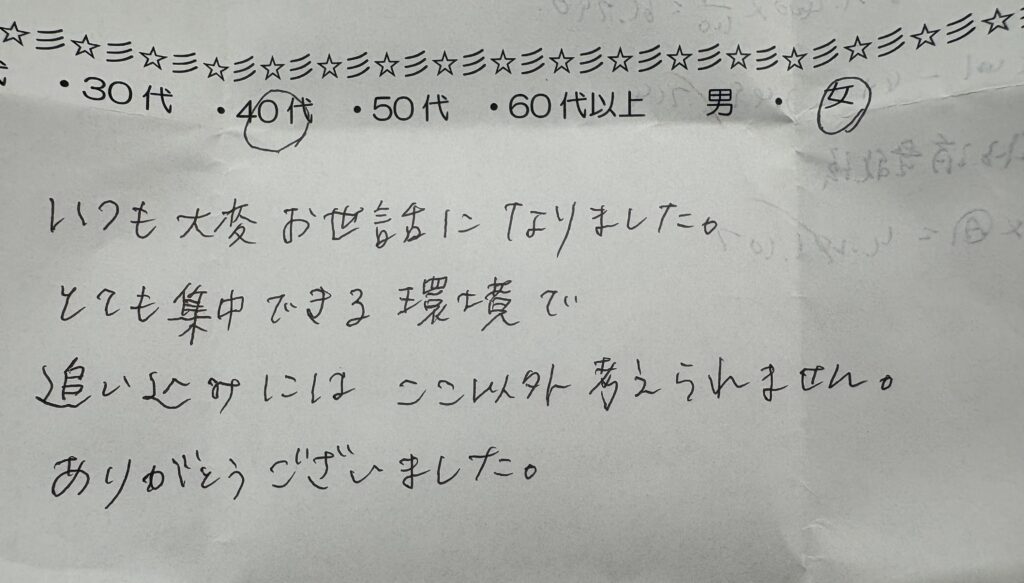 ☆彡☆彡☆彡☆彡☆彡☆彡☆彡☆彡☆彡☆彡☆彡☆彡☆彡☆彡☆彡☆彡☆彡☆
・30代 ・40代 ・50代 ・60代以上 男 ・ 女
いつも大変お世話になりました。
とても集中できる環境で
追い込みにはここ以外考えられません。
ありがとうございました。